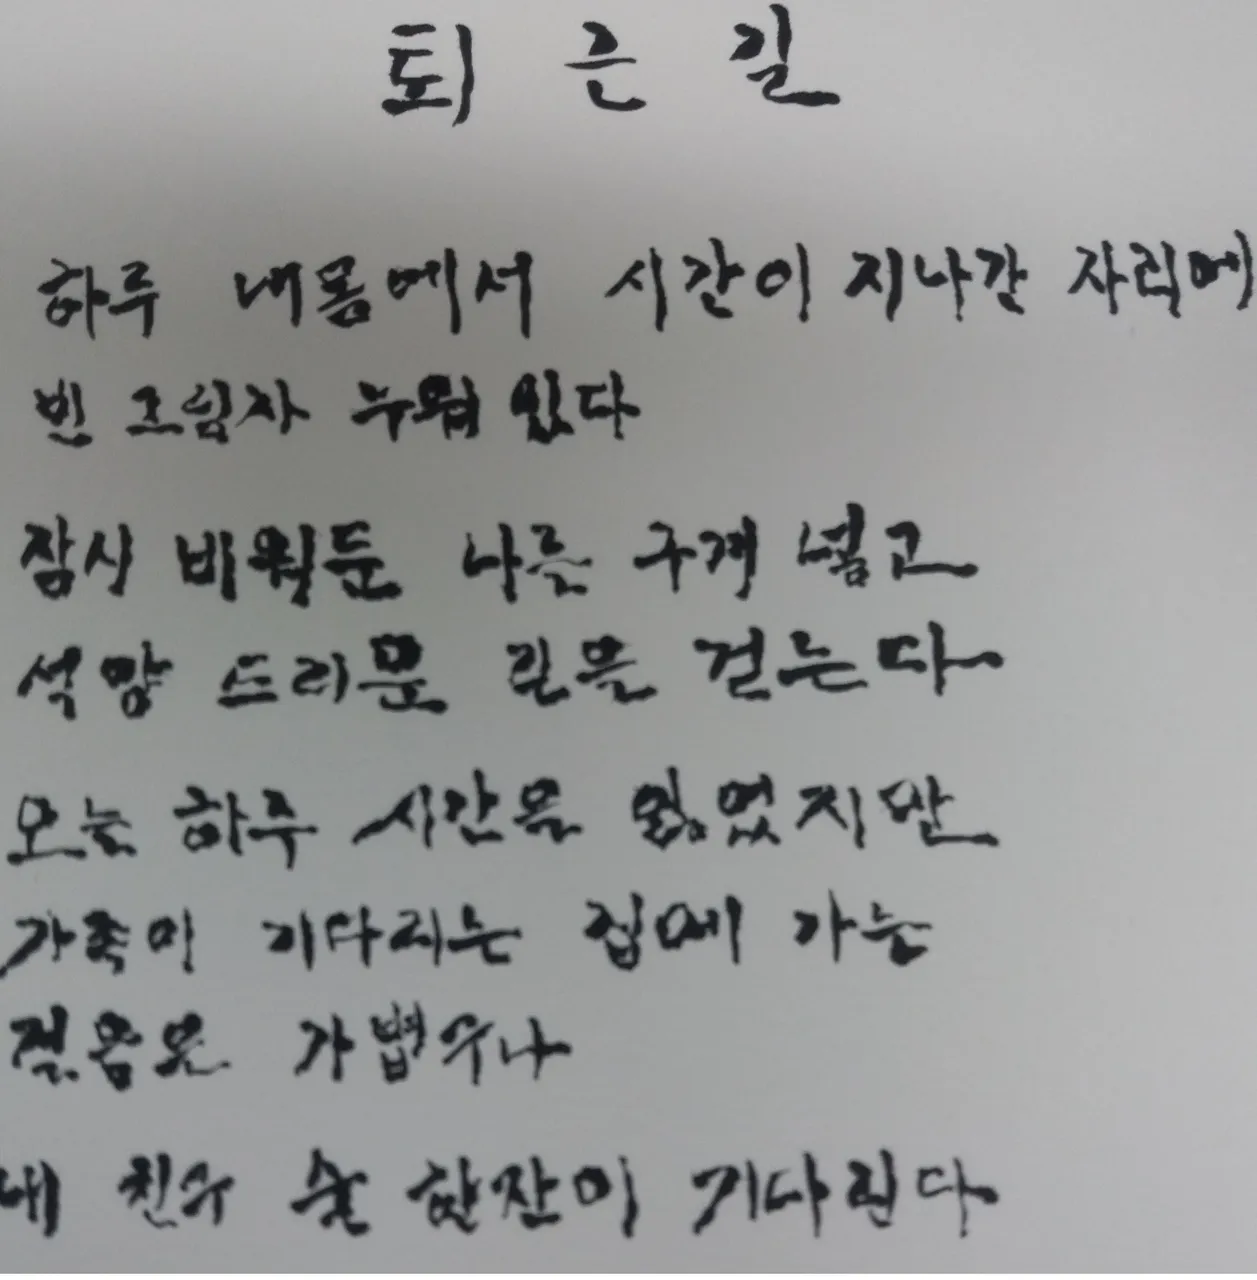 퇴근길
하루 내몸에서 시간이 지나간 자리에
빈 그림자 누워 있다
잠시 비워둔 나를 구겨 넣고
석양 드리운 길을 걷는다
오늘 하루 시간을 잃었지만
가족이 기다리는 집에 가는
걸음은 가볍우나
내 친우 술 한잔이 기다린다